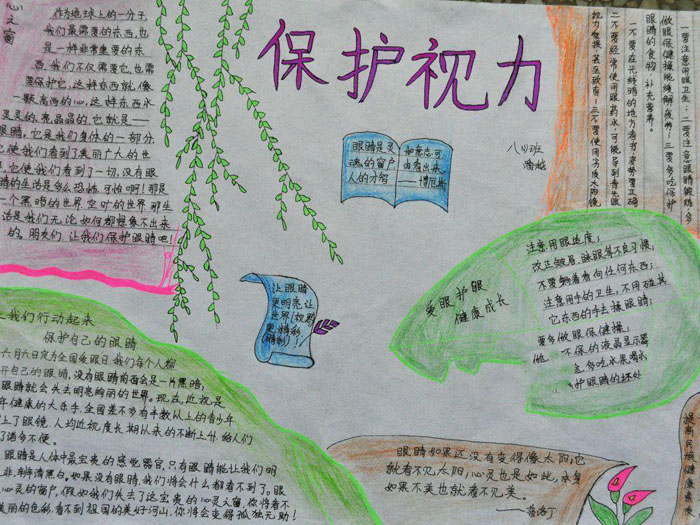 保护视力
八(4)班
心之窗
作为地球上的一分子,
我们最需要的东西,也
是一样非常重要的东
西。我们不仅需要它,也需
要保护它,这样东西就像
一颗亮亮的心,这样东西水
灵灵的,亮晶晶的,它就是——
眼睛。它是我们身体的一部分,
它使我们看到了美丽广大的世
界,它使我们看到了一切,没有眼
睛的生活是多么恐怖,可怕啊!那是
一个黑暗的世界,空旷的世界,那生
活是我们无论如何想像不出来
的。朋友们,让我们保护眼睛吧!
眼睛是灵
魂的窗户
人的才智
和意志可
由看出来
一要注意用眼卫生;二要注意眼睛锻炼,多
做眼保健操能缓解疲劳;三要多吃保护
眼睛的食物,补充营养。
一不要在光线暗的地方看书,姿势要正确
二不要经常使用眼药水,可能导到青光眼
视力模糊,甚至致盲;三不要使用劣质太阳镜
让眼睛
更明亮,让
世界
更精彩
爱眼护眼
健康成长
注意用眼适度;
改正皱眉、眯眼等不良习惯;
不要躺着看向任何东西;
注意用手的卫生,不用碰其
它东西的手去揉眼睛;
要多做眼保健操;
不保的液晶显示器
多吃水果喝水
护眼睛的好处
让我们行动起来
保护自己的眼睛
六月六日定为全国爱眼日,我们每个人都
开自己的眼睛,没有眼睛前面会是一片黑暗,
眼睛就会失去明亮绚丽的世界。现在,近视是
年健康的大杀手,全国差不多有半数以上的青少年
上了眼镜,人均近视度长期以来的不断上升,给人们
了诸多不便。
眼睛是人体中最宝贵的感觉器官,只有眼睛能让我们明
是非,辨清黑白。如果没有眼睛,我们将会什么都看不到了。眼
心灵的窗户,假如我们失去了这宝贵的心灵之窗,你将看不
美丽的色彩,看不到祖国的美好河山,你将会变得孤独无助!
眼睛如果还没有变得像太阳,它
就看不见太阳;心灵也是如此,本身
如果不美也就看不见美。
——普洛丁